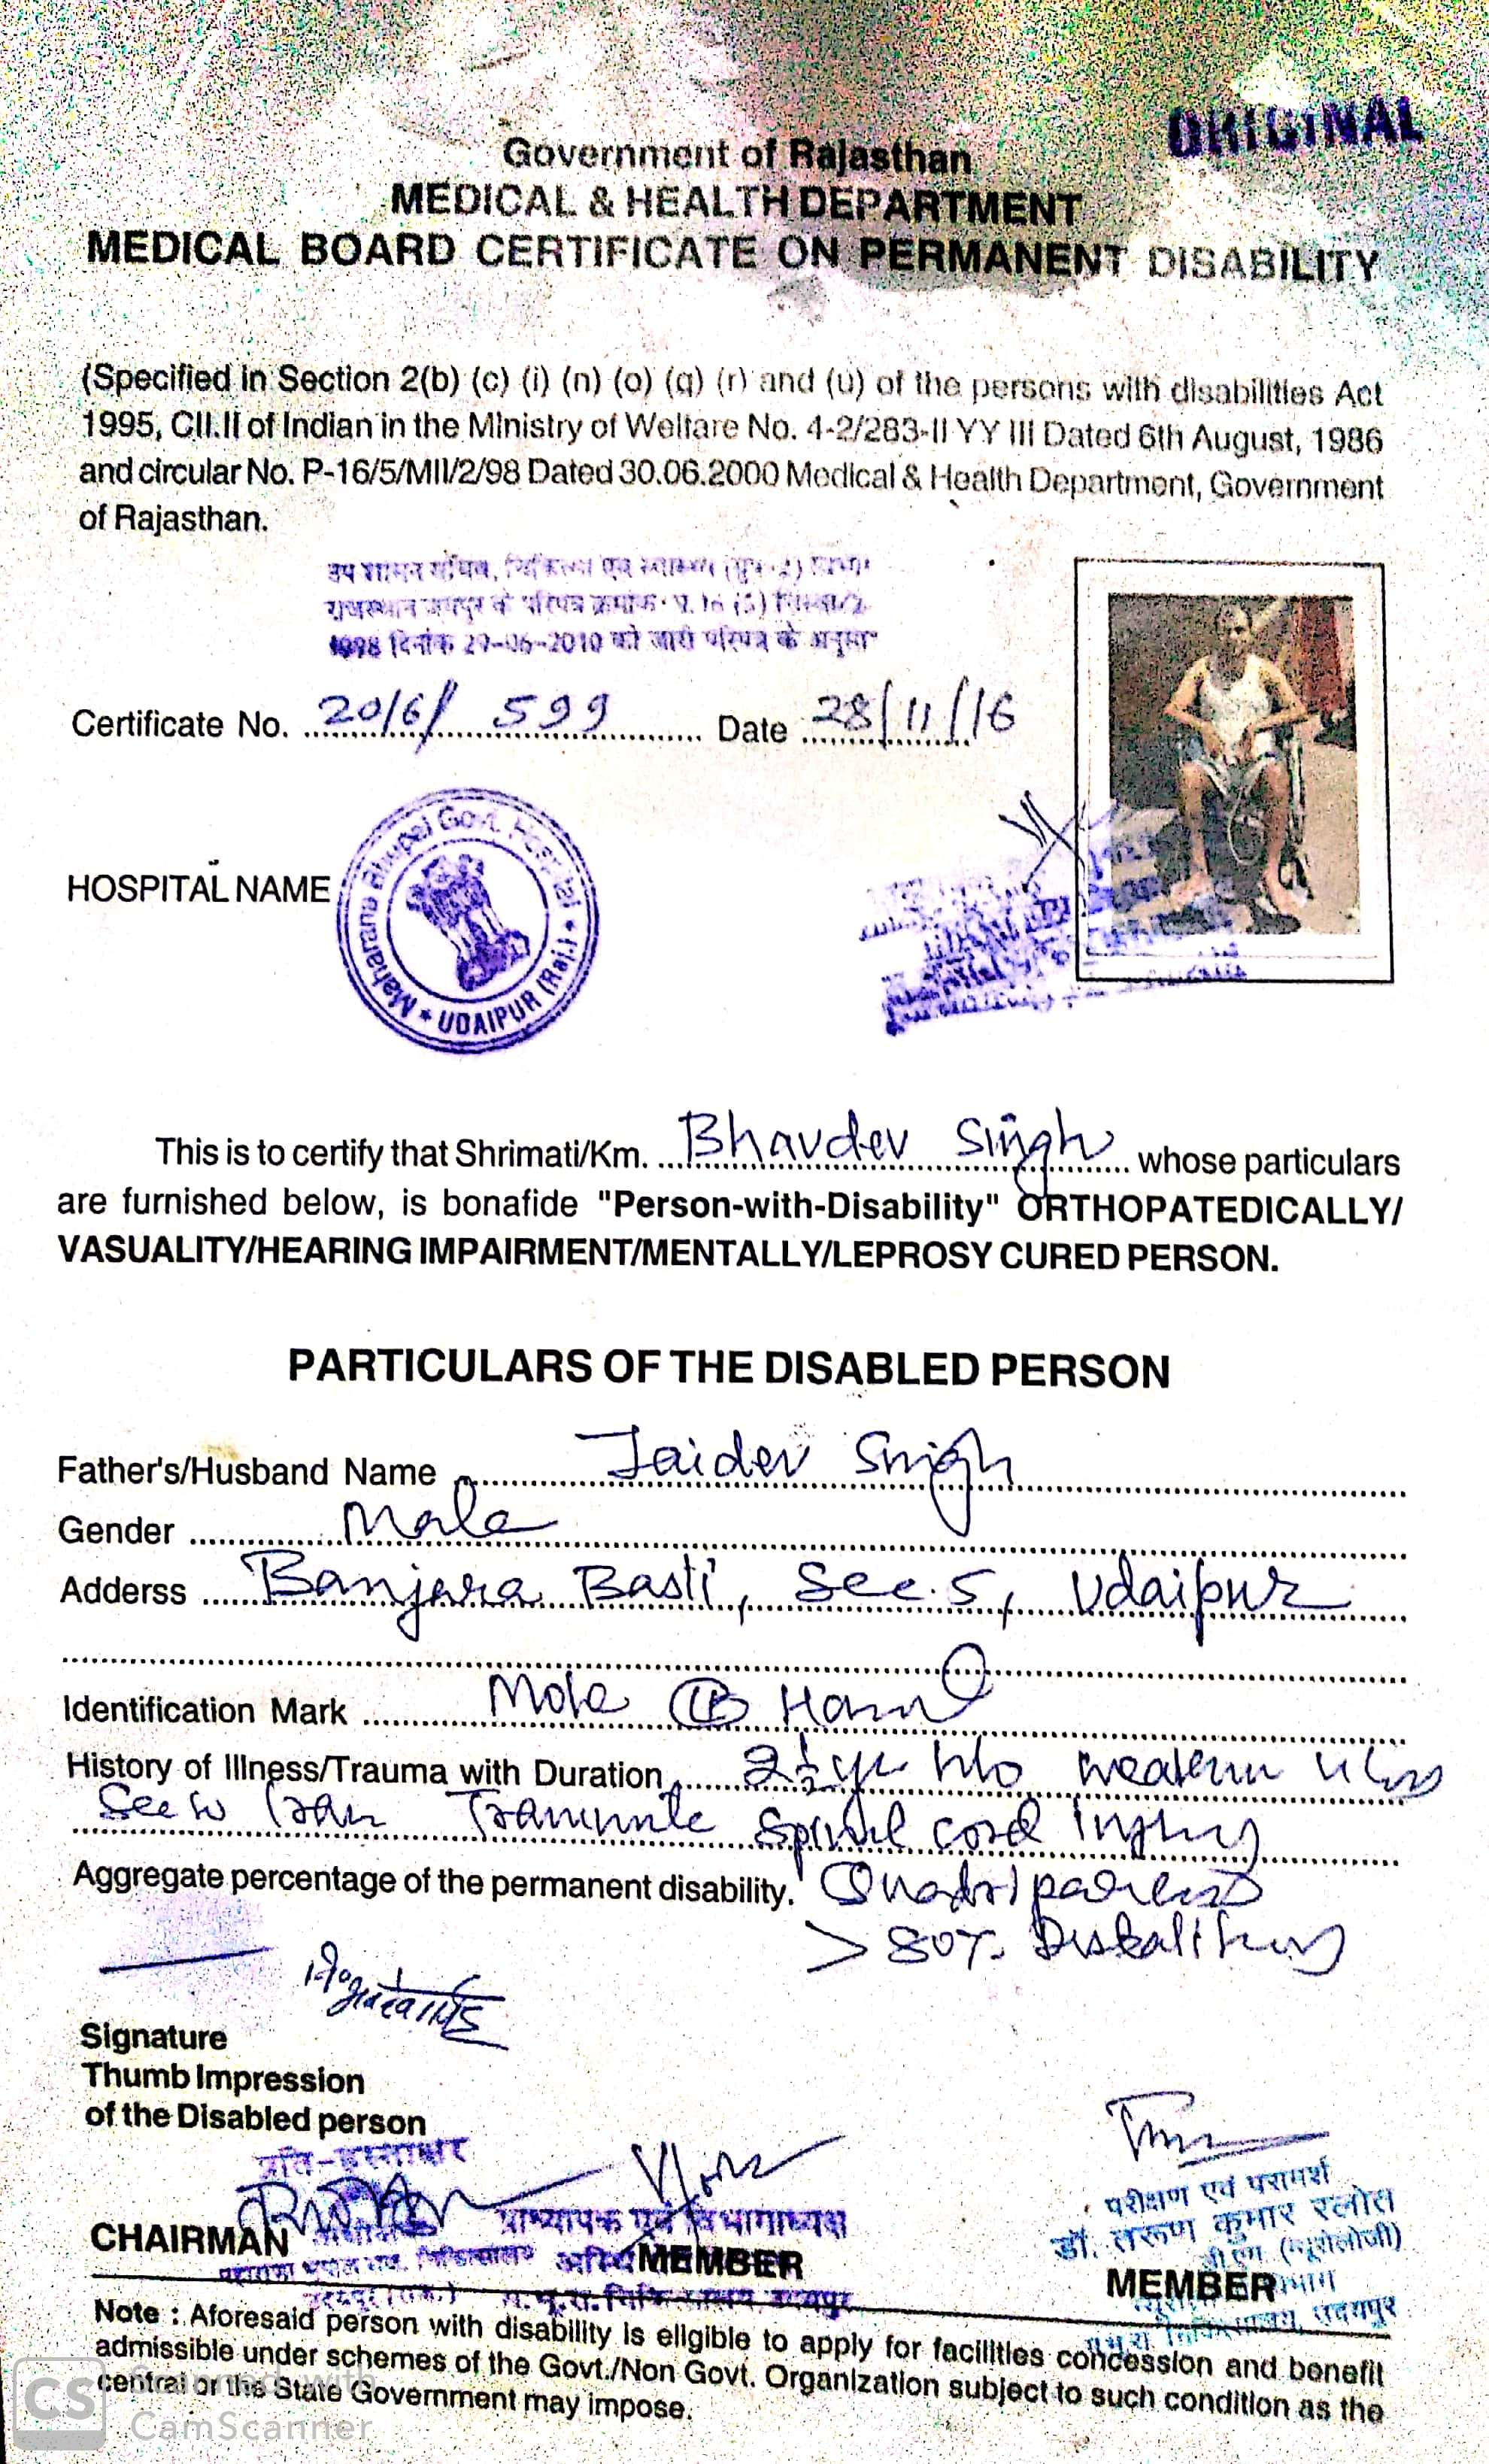 ORIGINAL
Government of Rajasthan
MEDICAL & HEALTH DEPARTMENT
MEDICAL BOARD CERTIFICATE ON PERMANENT DISABILITY
(Specified in Section 2(b) (c) (i) (n) (o) (q) (r) and (u) of the persons with disabilities Act
1995, CII.II of Indian in the Ministry of Welfare No. 4-2/283-II YY III Dated 6th August, 1986
and circular No. P-16/5/MII/2/98 Dated 30.06.2000 Medical & Health Department, Government
of Rajasthan.
उप शासन सचिव, चिकित्सा एवं स्वास्थ्य (ग्रुप-2) विभाग
राजस्थान जयपुर के परिपत्र क्रमांक प. 16 (5)
1998 दिनांक 29-06-2010 को जारी परिपत्र के
Certificate No. 2016/ 599 Date 28/11/16
HOSPITAL NAME
Maharana Bhupal Govt. Hospital
UDAIPUR (Raj.)
This is to certify that Shrimati/Km. Bhavdev Singh whose particulars
are furnished below, is bonafide "Person-with-Disability" ORTHOPATEDICALLY/
VASUALITY/HEARING IMPAIRMENT/MENTALLY/LEPROSY CURED PERSON.
PARTICULARS OF THE DISABLED PERSON
Father's/Husband Name Jaidev Singh
Gender Male
Adderss Banjara Basti, Sec. 5, Udaipur
Identification Mark Mole Hand
History of Illness/Trauma with Duration 2½ yr h/o
Spinal cord Injury
Aggregate percentage of the permanent disability. Quadriparesis
> 80%
Signature
Thumb Impression
of the Disabled person
प्रति-हस्ताक्षर
प्राध्यापक एवं विभागाध्यक्ष
परीक्षण एवं परामर्श
डॉ. तरूण कुमार रलोत
डी.एम (न्यूरोलोजी)
CHAIRMAN
MEMBER
MEMBER
Note : Aforesaid person with disability is eligible to apply for facilities concession and benefit
admissible under schemes of the Govt./Non Govt. Organization subject to such condition as the
central or the State Government may impose.
CS Scanned with
CamScanner